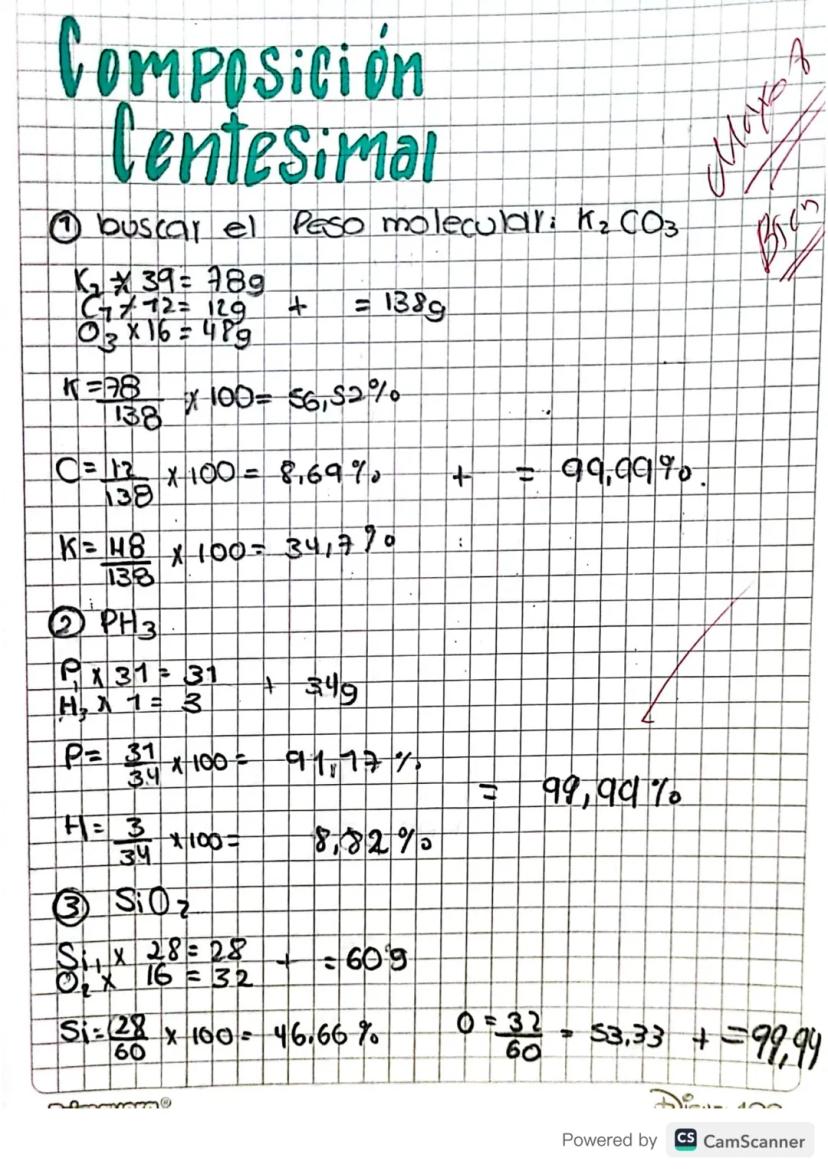 Composición
Centesimal
Mayo 7
Bien
① buscar el Peso molecular: K₂CO₃
K₂ x 39 = 78g
C₁ x 12 = 12g + = 138g
O₃ x 16 = 48g
K = 78/138 x 100 = 56,52%
C = 12/138 x 100 = 8,69% + = 99,99%.
K = 48/138 x 100 = 34,7%
② PH₃
P₁ x 31 = 31 + 34g
H₃ x 1 = 3
P = 31/34 x 100 = 91,17%
= 99,99%
H = 3/34 x 100 = 8,82%
③ SiO₂
Si₁ x 28 = 28 + = 60g
O₂ x 16 = 32
Si = 28/60 x 100 = 46.66% O = 32/60 = 53,33 + = 99,99
Powered by CS CamScanner